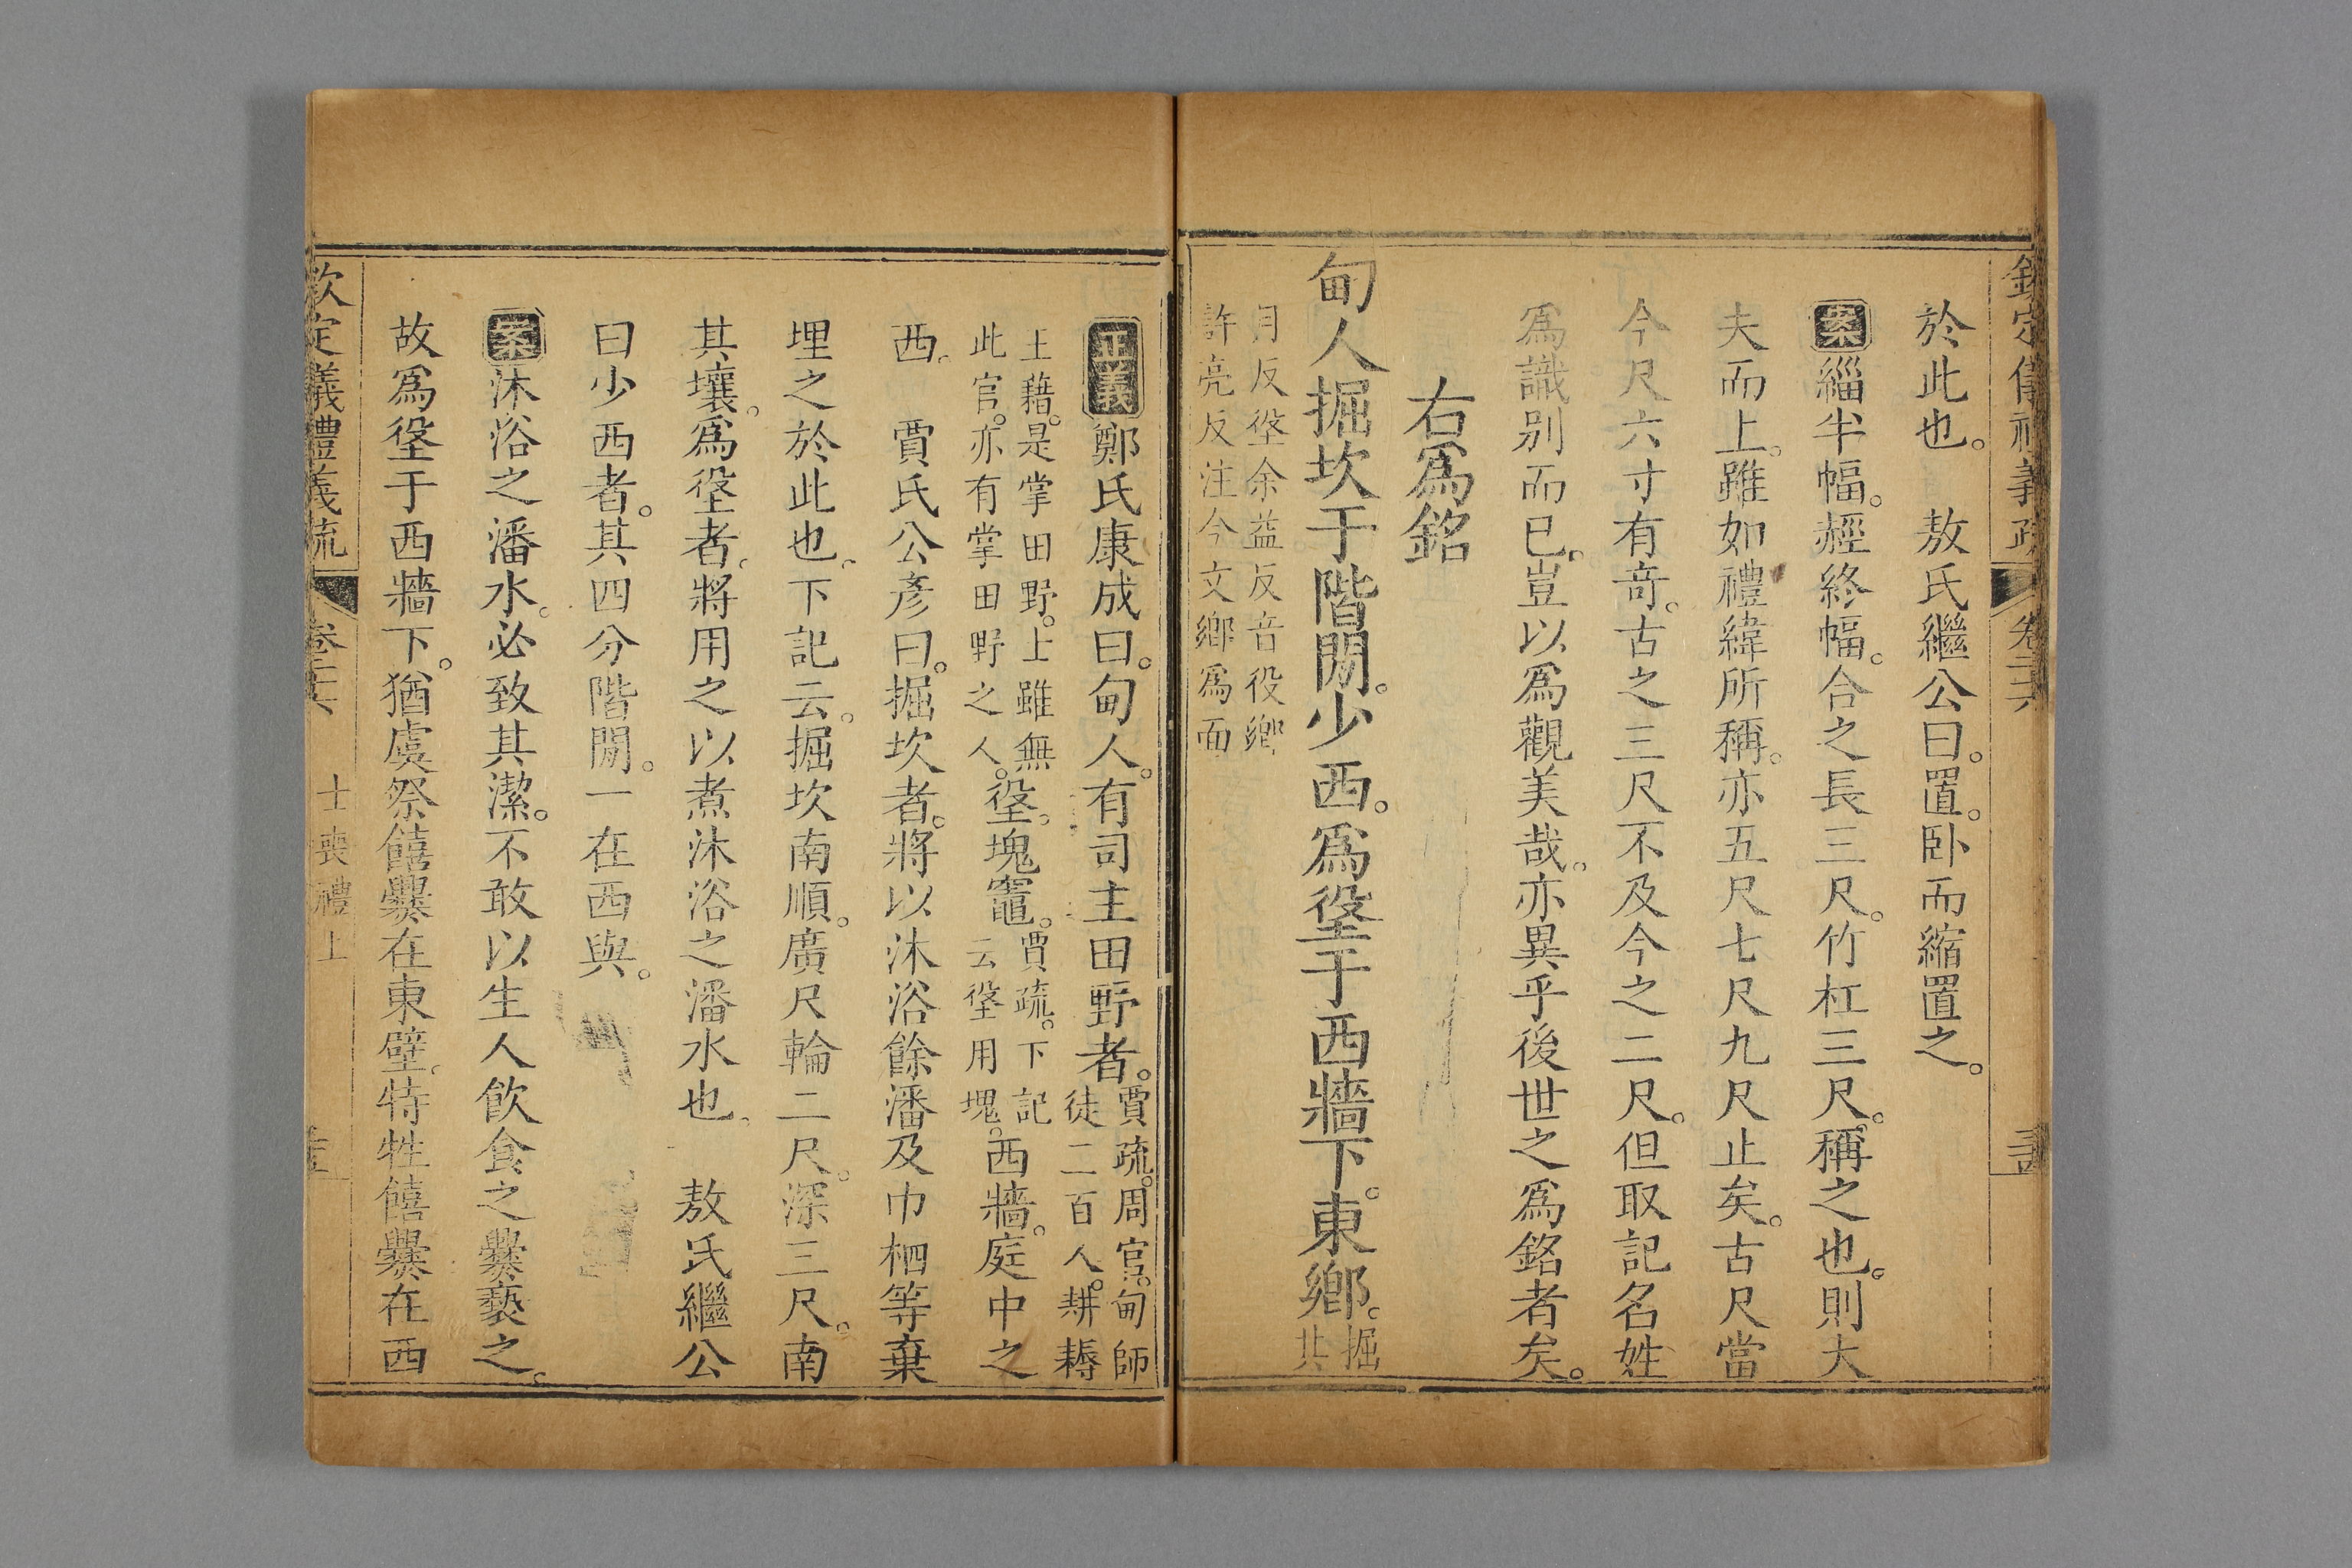 欽定儀禮義疏 卷二十六
於此也。 敖氏繼公曰。置。卧而縮置之。
案緇半幅。經終幅。合之長三尺。竹杠三尺。稱之也。則大
夫而上。雖如禮緯所稱。亦五尺七尺九尺止矣。古尺當
今尺六寸有奇。古之三尺不及今之二尺。但取記名姓
爲識别而已。豈以爲觀美哉。亦異乎後世之爲銘者矣。
右爲銘
甸人掘坎于階閒。少西。爲垼于西牆下。東鄉。掘
其
月反垼余益反音役鄉
許亮反注今文鄉爲面
正義鄭氏康成曰。甸人。有司主田野者。賈疏。周官。甸師
徒二百人。耕耨
王藉。是掌田野。士雖無
此官。亦有掌田野之人。垼。塊竈。賈疏。下記
云垼用塊。西牆。庭中之
西。 賈氏公彥曰。掘坎者。將以沐浴餘潘及巾柶等棄
埋之於此也。下記云。掘坎南順。廣尺輪二尺。深三尺。南
其壤。爲垼者。將用之以煮沐浴之潘水也。 敖氏繼公
曰少西者。其四分階閒。一在西與。
案沐浴之潘水。必致其潔。不敢以生人飲食之爨褻之。
故爲垼于西牆下。猶虞祭饎爨在東壁。特牲饎爨在西
欽定儀禮義疏 卷二十六 士喪禮上